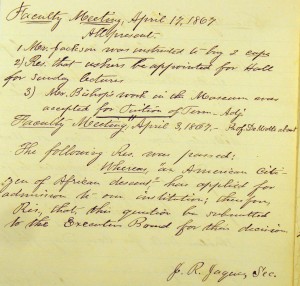 Faculty Meeting, April 17, 1867
All present.
1) Mrs. Jackson was instructed to buy 2 cups
2) Res. that ushers be appointed for Hall
for Sunday lectures
3) Mr. Bishop's work in the Museum was
accepted for Tuition of Term. Adj
Faculty Meeting April 3, 1867. Prof De Motte absent
The following Res. was passed:
Whereas, an American Citi-
zen of African descent has applied for
admission to our institution; therefore,
Res, that, this question be submitted
to the Executive Board for their decision
J. R. Jaques Sec.